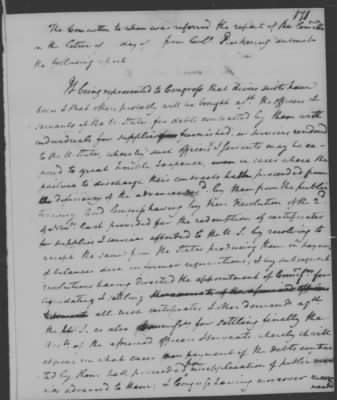 171
The Committee to whom was referred the report of the Comttee
on the letter of day of from Col. Pickering submit
the following report.
It being represented to Congress that divers suits have
been & that others probably will be brought agst. the officers &
servants of the U. States for debts contracted by them with
individuals for supplies furnished, or services rendered
to the U. States, whereby such officers & servants may be ex-
posed to great trouble & expence, in cases where the
failure to discharge their contracts has proceeded from
the deficiency of the advances by them from the public
treasury And Congress having by their Resolution of the 2d
& Novr. last provided for the redemption of certificates
for supplies & services afforded to the U. S. by resolving to
receipt the same from the States producing them in payment
of balances due on former requisitions, & by subsequent
resolutions having directed the appointment of Commrs. for
liquidating & settling the accounts of the aforesaid officers
all such certificates & other demands agst
the U. S. as also Commrs for settling finally the
accts. of the aforesaid officers & servants, whereby it will
appear in what cases payment of the debts contrac
ted by them hath proceeded from misapplication of public
advanced to them: & Congress having moreover recom
mend